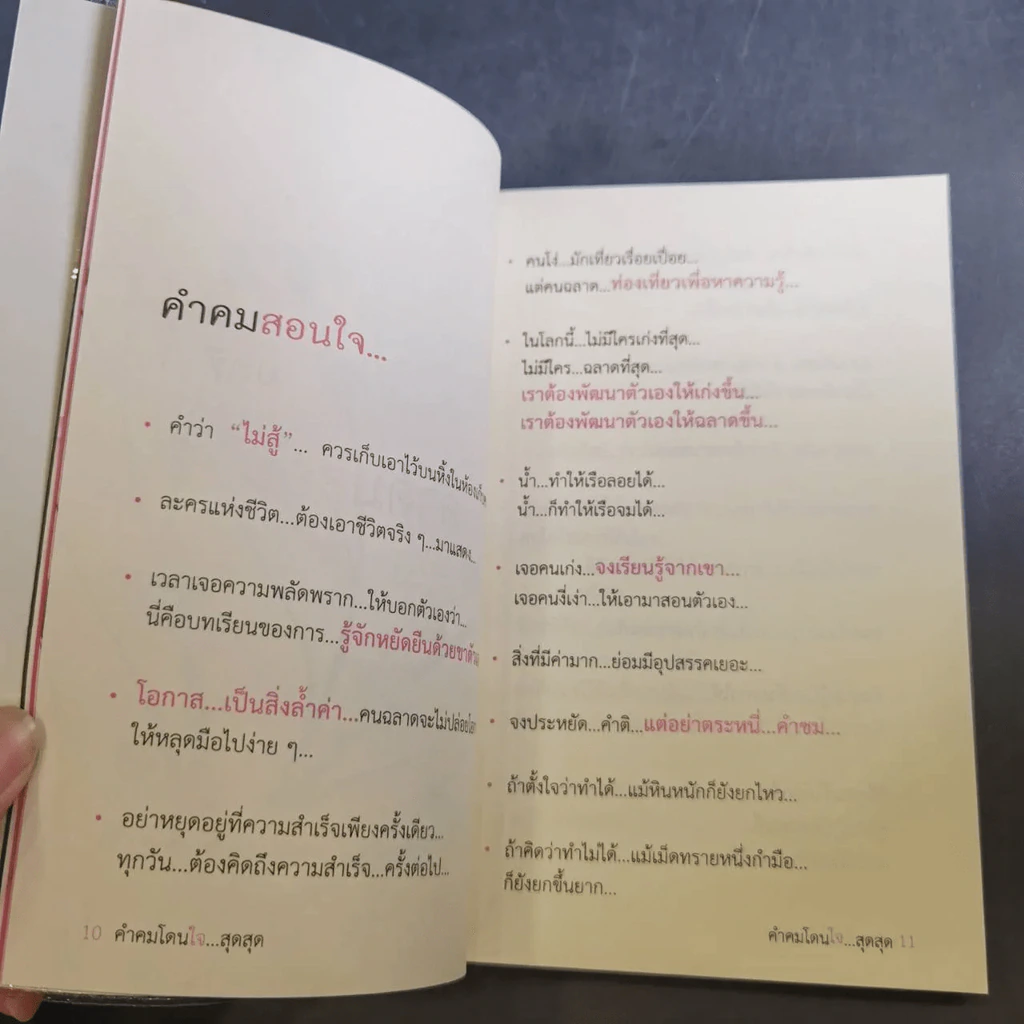 คำคมสอนใจ...
• คำว่า "ไม่สู้"... ควรเก็บเอาไว้บนหิ้งใน
• ละครแห่งชีวิต...ต้องเอาชีวิตจริง ๆ...มาแสดง...
• เวลาเจอความพลัดพราก...ให้บอกตัวเองว่า...
นี่คือบทเรียนของการ...รู้จักหยัดยืนด้วยขา
• โอกาส...เป็นสิ่งล้ำค่า...คนฉลาดจะไม่ปล่อย
ให้หลุดมือไปง่าย ๆ...
• อย่าหยุดอยู่ที่ความสำเร็จเพียงครั้งเดียว...
ทุกวัน...ต้องคิดถึงความสำเร็จ...ครั้งต่อไป...
10 คำคมโดนใจ...สุดสุด
• คนโง่...มักเที่ยวเรื่อยเปื่อย...
แต่คนฉลาด...ท่องเที่ยวเพื่อหาความรู้...
• ในโลกนี้...ไม่มีใครเก่งที่สุด...
ไม่มีใคร...ฉลาดที่สุด...
เราต้องพัฒนาตัวเองให้เก่งขึ้น...
เราต้องพัฒนาตัวเองให้ฉลาดขึ้น...
• น้ำ...ทำให้เรือลอยได้...
น้ำ...ก็ทำให้เรือจมได้...
• เจอคนเก่ง...จงเรียนรู้จากเขา...
เจอคนงี่เง่า...ให้เอามาสอนตัวเอง...
• สิ่งที่มีค่ามาก...ย่อมมีอุปสรรคเยอะ...
• จงประหยัด...คำติ...แต่อย่าตระหนี่...คำชม...
• ถ้าตั้งใจว่าทำได้...แม้หินหนักก็ยังยกไหว...
• ถ้าคิดว่าทำไม่ได้...แม้เม็ดทรายหนึ่งกำมือ...
ก็ยังยกขึ้นยาก...
คำคมโดนใจ...สุดสุด 11